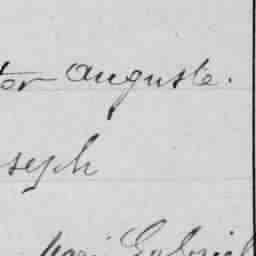 ter Auguste.
seph
Gabriel